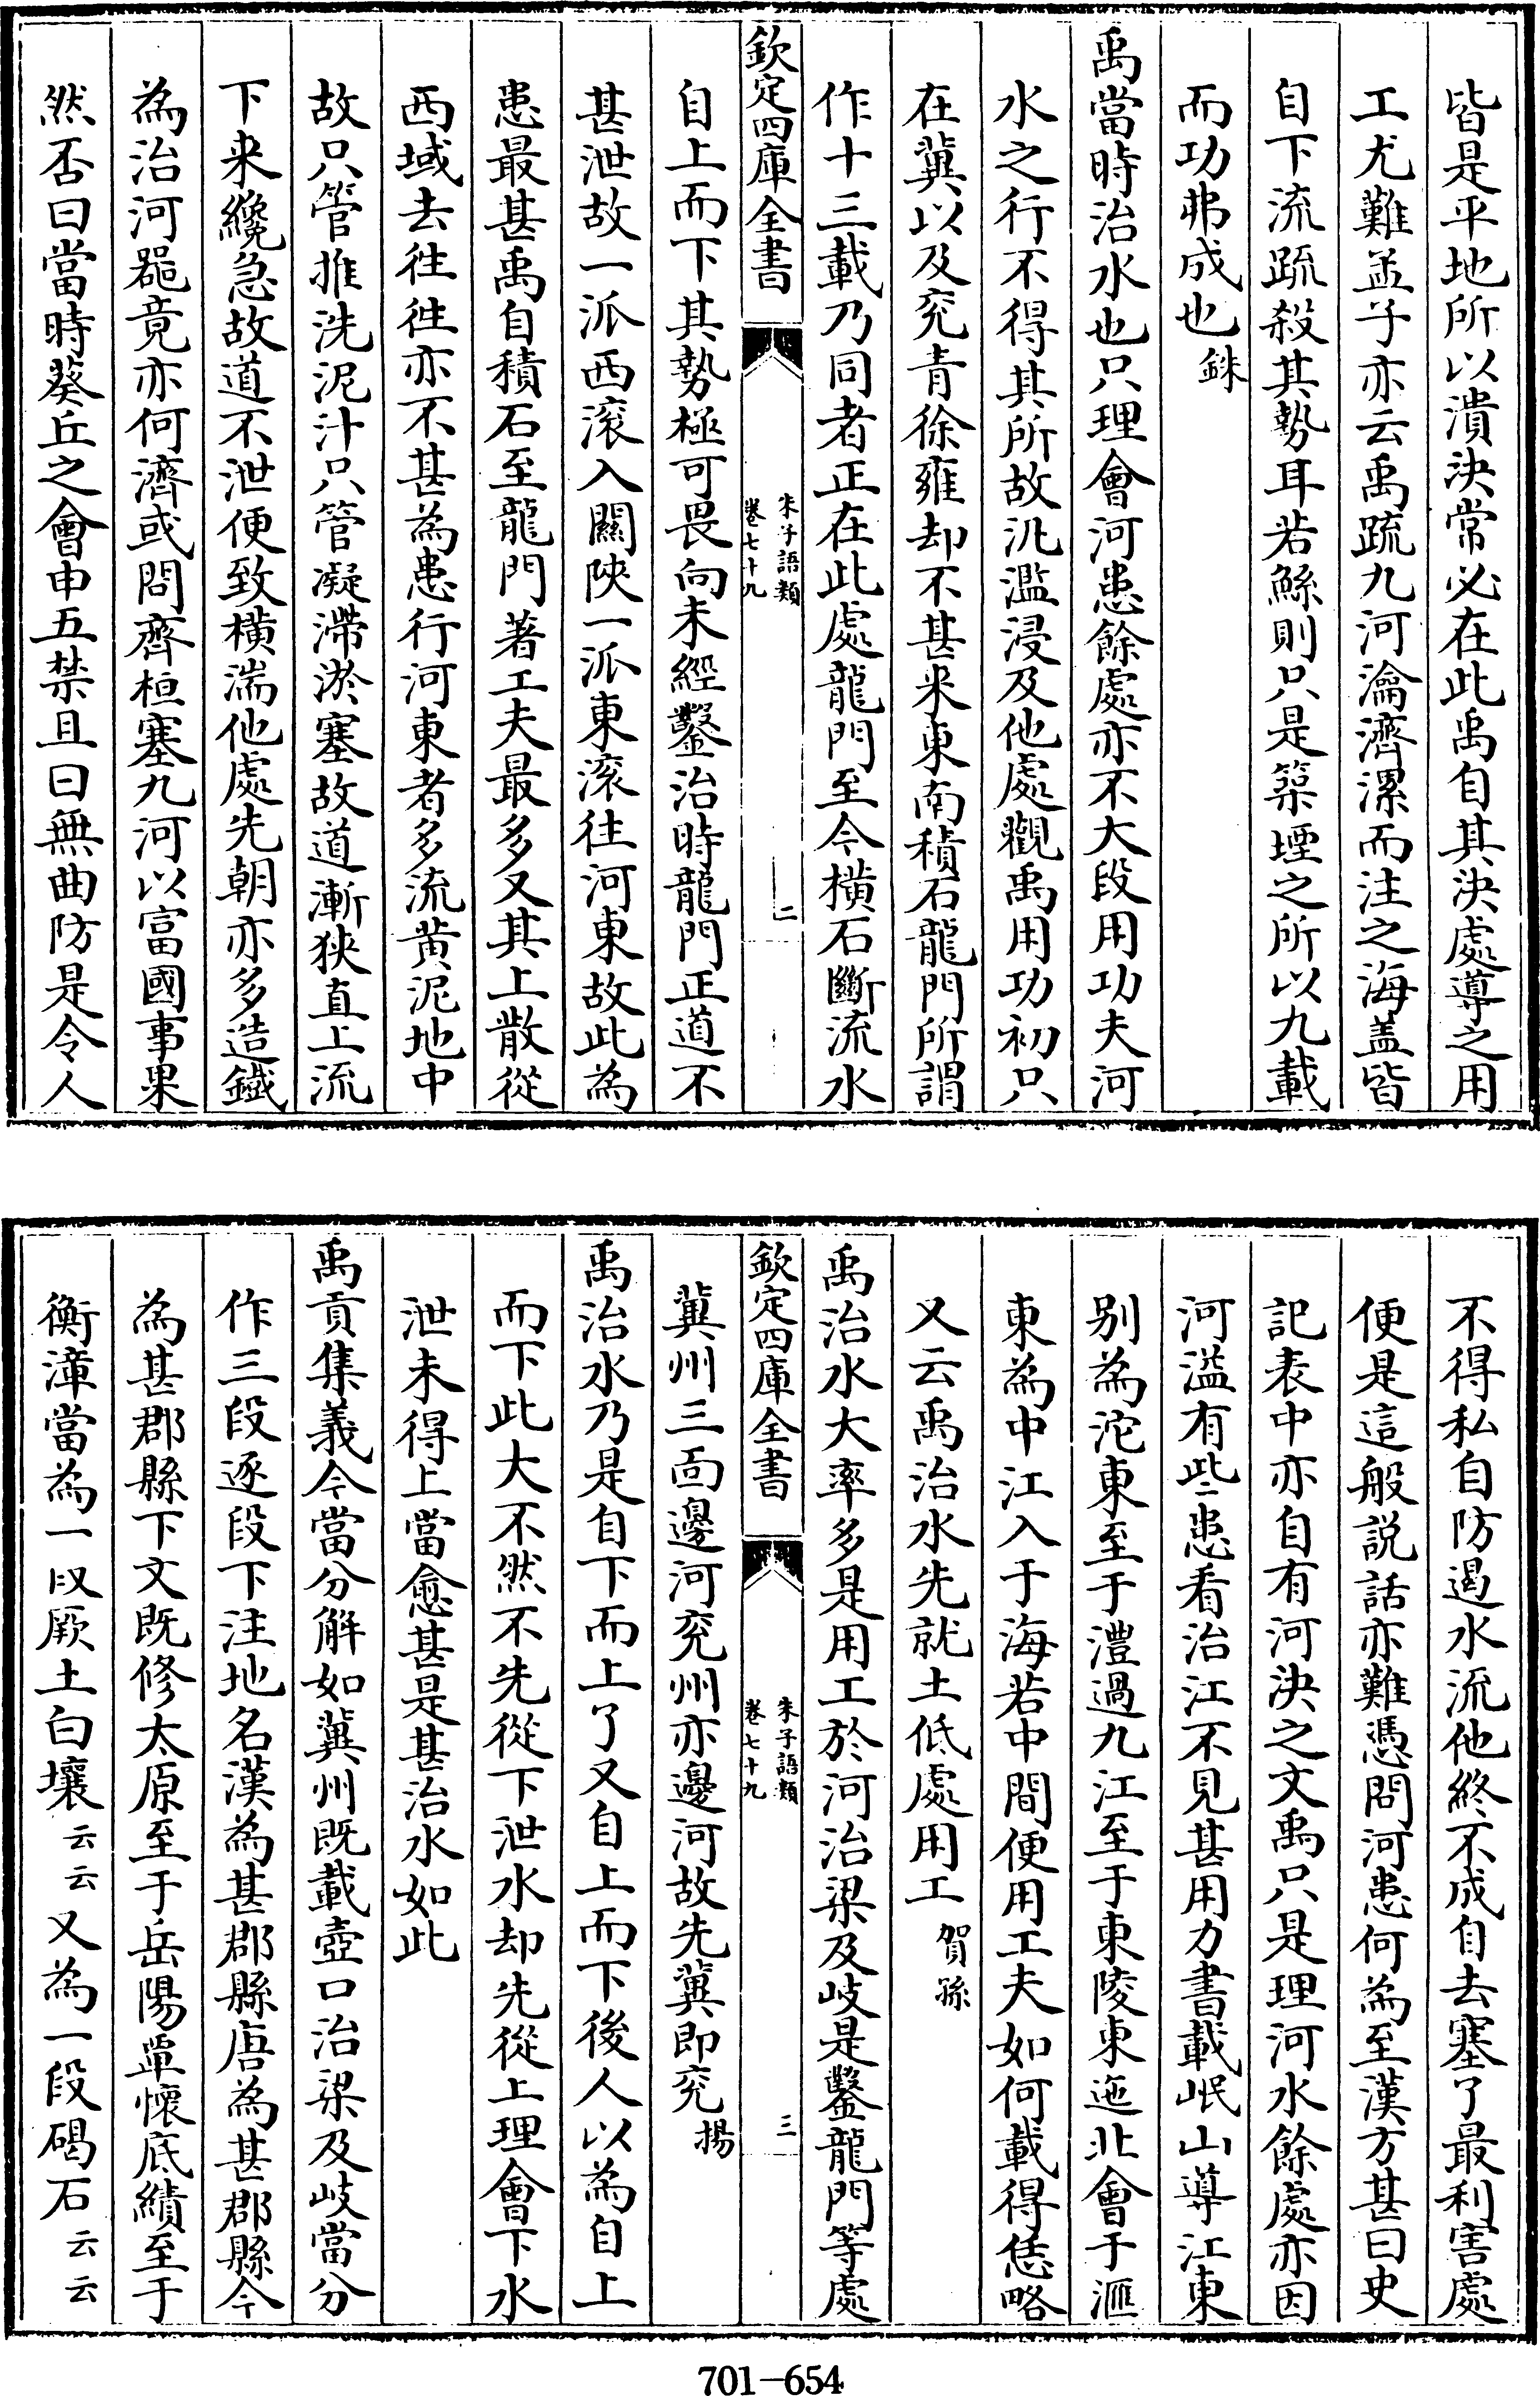 皆是平地所以潰決常必在此禹自其決處導之用
工尤難孟子亦云禹疏九河瀹濟漯而注之海盖皆
自下流疏殺其勢耳若鯀則只是築堙之所以九載
而功弗成也銖
禹當時治水也只理會河患餘處亦不大段用功夫河
水之行不得其所故汎濫浸及他處觀禹用功初只
在冀以及兖青徐雍却不甚来東南積石龍門所謂
作十三載乃同者正在此處龍門至今橫石斷流水
欽定四庫全書
朱子語類
卷七十九
二
自上而下其勢極可畏向未經鑿治時龍門正道不
甚泄故一派西滾入關陝一派東滾往河東故此為
患最甚禹自積石至龍門著工夫最多又其上散從
西域去往往亦不甚為患行河東者多流黄泥地中
故只管推洗泥汁只管凝滯淤塞故道漸狹直上流
下来纔急故道不泄便致橫湍他處先朝亦多造鐵
為治河噐竟亦何濟或問齊桓塞九河以富國事果
然否曰當時葵丘之會申五禁且曰無曲防是令人
不得私自防遏水流他終不成自去塞了最利害處
便是這般説話亦難憑問河患何為至漢方甚曰史
記表中亦自有河決之文禹只是理河水餘處亦因
河溢有些患看治江不見甚用力書載岷山導江東
别為沱東至于澧過九江至于東陵東迤北會于滙
東為中江入于海若中間便用工夫如何載得恁略
又云禹治水先就土低處用工賀孫
禹治水大率多是用工於河治梁及岐是鑿龍門等處
欽定四庫全書
朱子語類
卷七十九
三
冀州三面邊河兖州亦邊河故先冀即兖揚
禹治水乃是自下而上了又自上而下後人以為自上
而下此大不然不先從下泄水却先從上理會下水
泄未得上當愈甚是甚治水如此
禹貢集義今當分解如冀州既載壺口治梁及岐當分
作三段逐段下注地名漢為甚郡縣唐為甚郡縣今
為甚郡縣下文既修太原至于岳陽覃懷底績至于
衡漳當為一段厥土白壤云云又為一段碣石云云
701-654